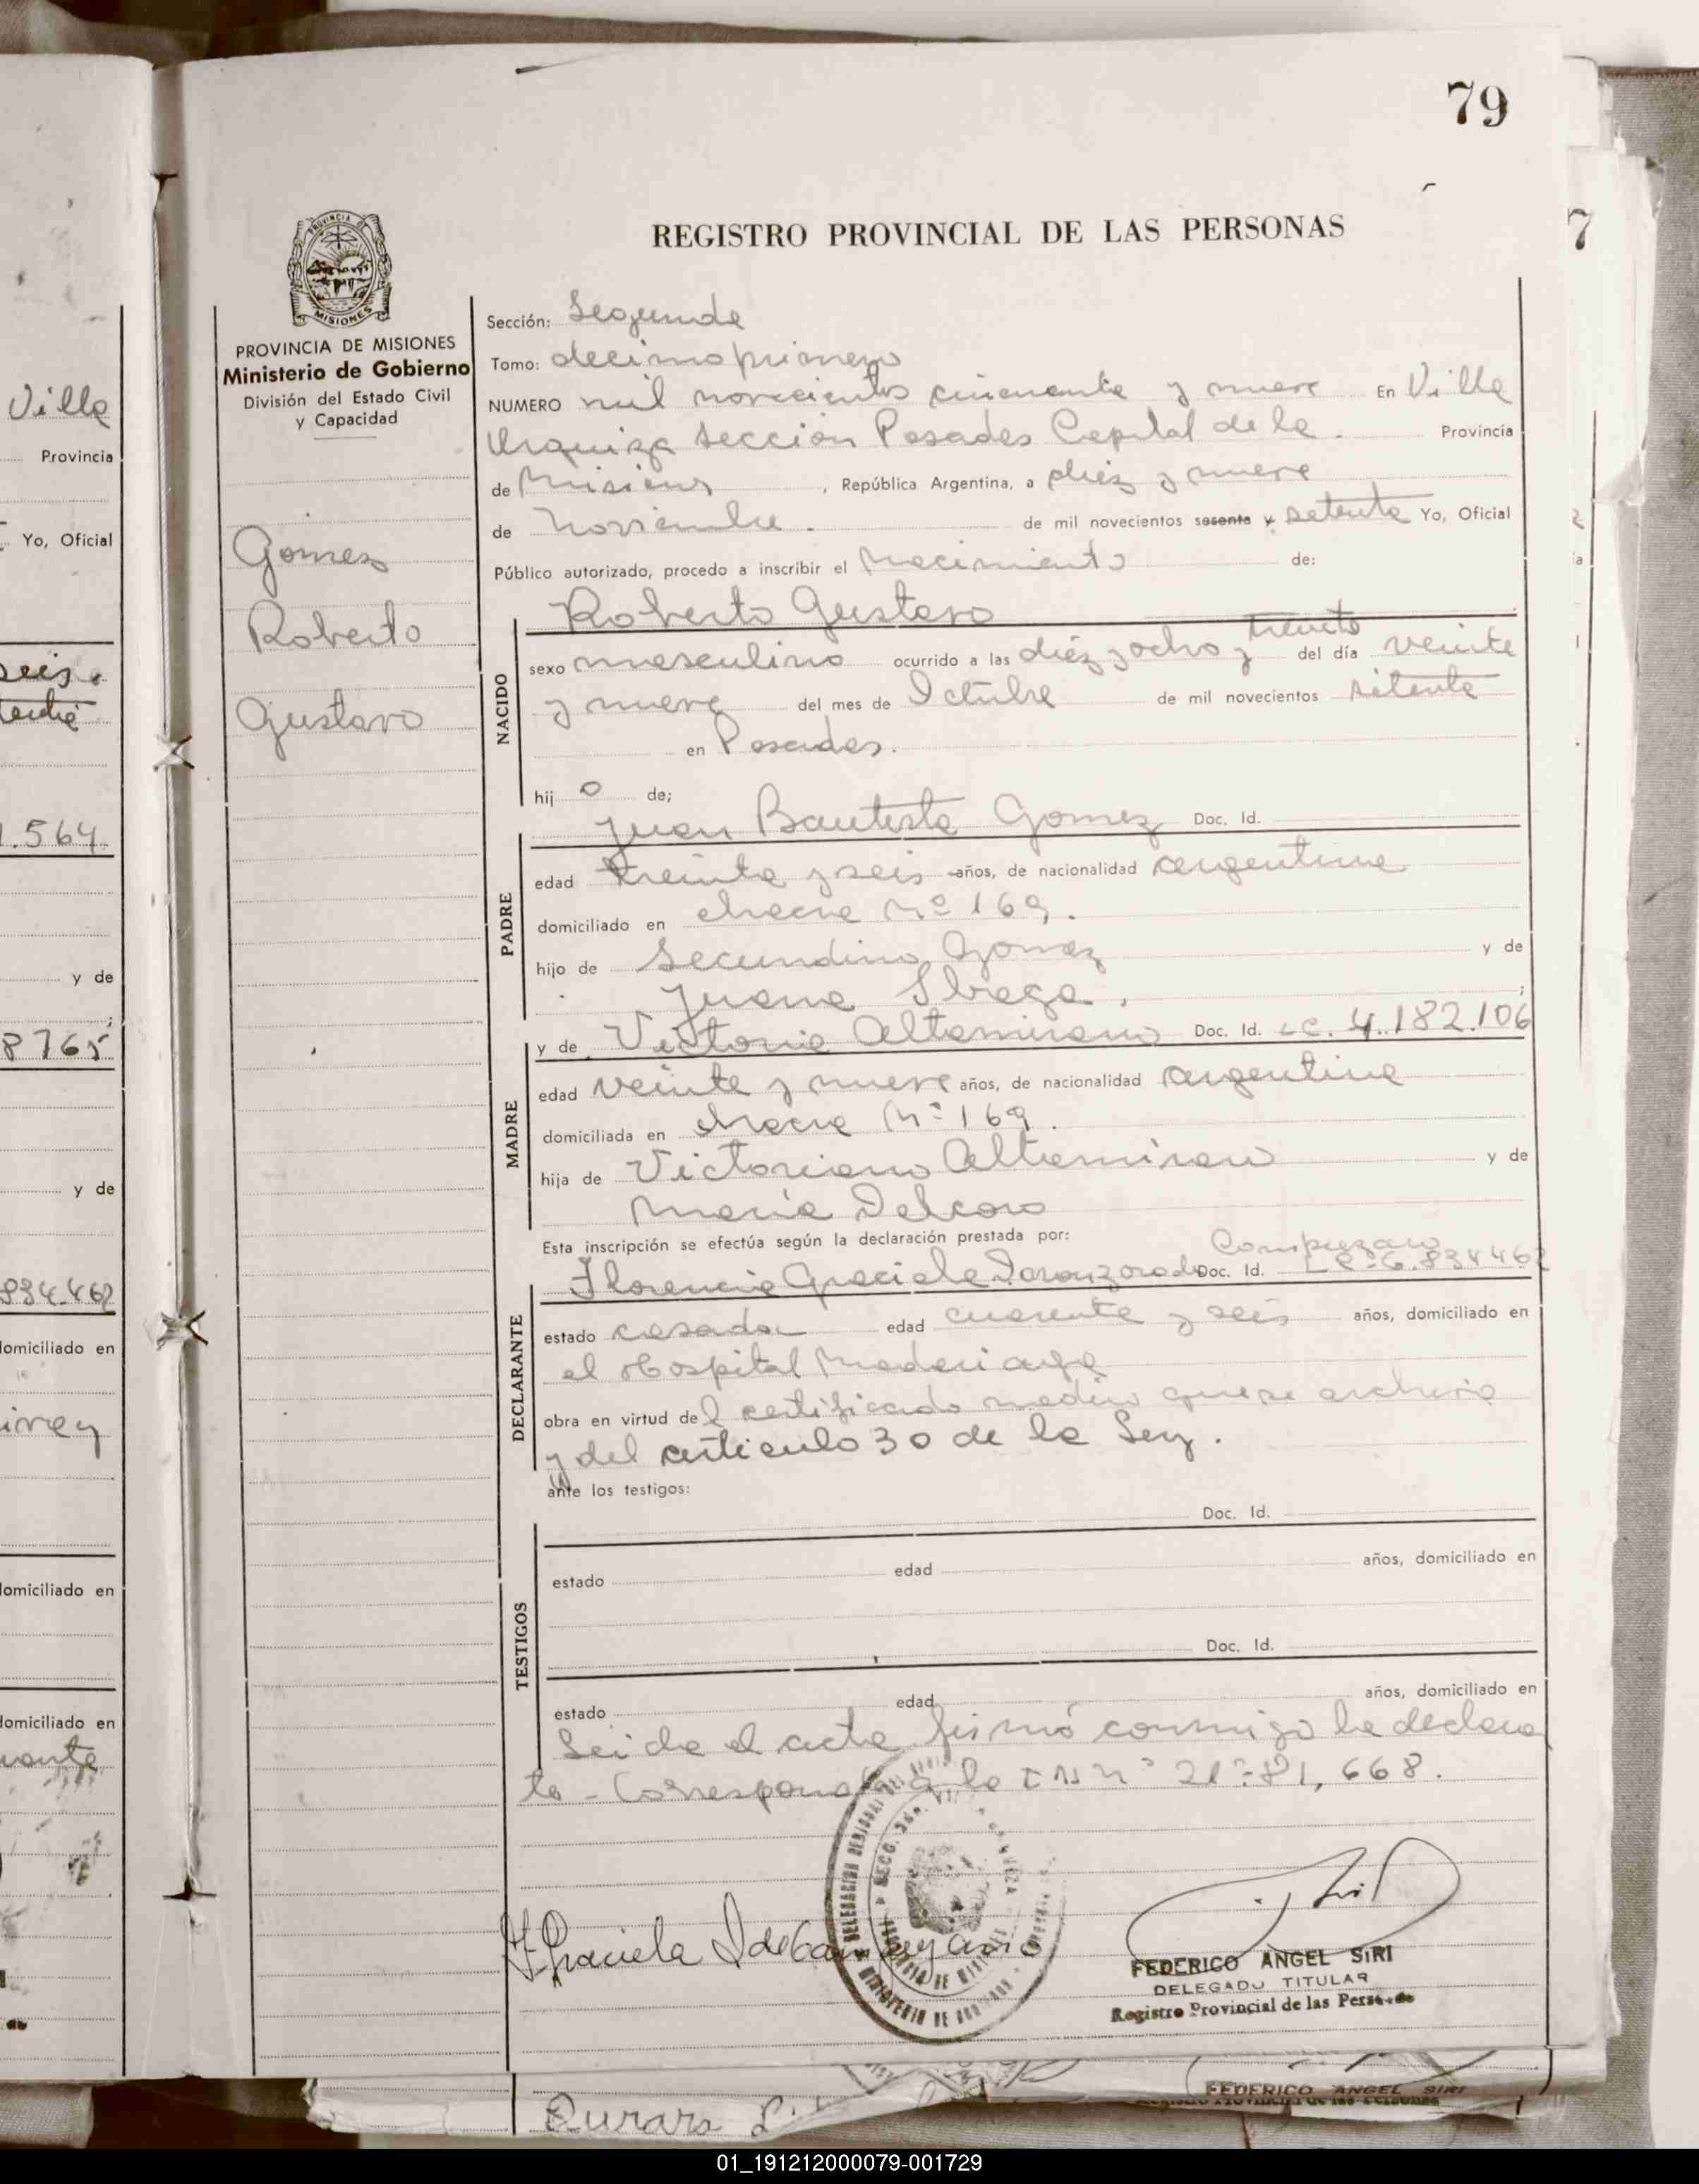 79
REGISTRO PROVINCIAL DE LAS PERSONAS
7
PROVINCIA
MISIONES
PROVINCIA DE MISIONES
Ministerio de Gobierno
División del Estado Civil
y Capacidad
Gomez
Roberto
Gustavo
Sección: Segunda
Tomo: decimo primero
NUMERO mil novecientos cincuenta y nueve En Villa
Urquiza Sección Posadas Capital de la Provincia
de Misiones, República Argentina, a diez y nueve
de Noviembre. de mil novecientos sesenta y setenta Yo, Oficial
Público autorizado, procedo a inscribir el Nacimiento de:
Roberto Gustavo
NACIDO
sexo masculino ocurrido a las diez y ocho y treinta del día veinte
y nueve del mes de Octubre de mil novecientos setenta
en Posadas.
hij o de;
Juan Bautista Gomez Doc. Id.
PADRE
edad treinta y seis años, de nacionalidad argentina
domiciliado en chacra Nº 169.
hijo de Secundino Gomez y de
Juana ;
y de Victoria Altamirano Doc. Id. LC. 4.182.106
MADRE
edad veinte y nueve años, de nacionalidad argentina
domiciliada en chacra Nº 169.
hija de Victoriano Altamirano y de
María
Esta inscripción se efectúa según la declaración prestada por:
Florencia Graciela Doc. Id. 6.834462
DECLARANTE
estado casada edad cuarenta y seis años, domiciliado en
el Hospital Madariaga
obra en virtud del certificado medico que se archiva
y del articulo 30 de la Ley.
ante los testigos:
Doc. Id.
TESTIGOS
estado edad años, domiciliado en
Doc. Id.
estado edad años, domiciliado en
Leida el acta firmó conmigo la declaran
te - Corresponde a la 668.
FEDERICO ANGEL SIRI
DELEGADO TITULAR
Registro Provincial de las Personas
Ville
Provincia
Yo, Oficial
seis.
.564.
y de
8765
y de
834.462
domiciliado en
domiciliado en
domiciliado en
FEDERICO ANGEL SIRI
01_191212000079-001729